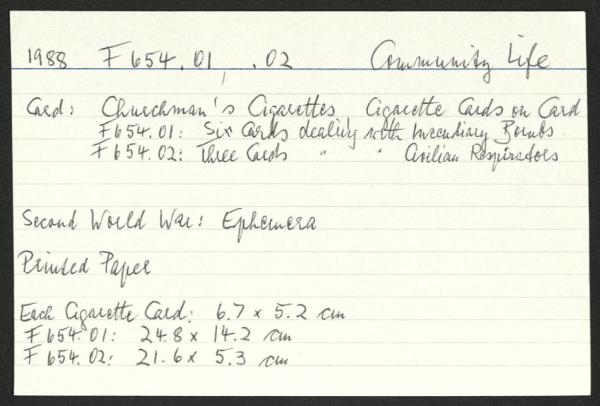 1988 F654.01, .02 Community Life
Card: Churchman's Cigarettes Cigarette Cards on Card
F654.01: Six Cards dealing with Incendiary Bombs.
F654.02: Three Cards " " Civilian Respirators
Second World War: Ephemera
Printed Paper
Each Cigarette Card: 6.7 x 5.2 cm
F654.01: 24.8 x 14.2 cm
F654.02: 21.6 x 5.3 cm